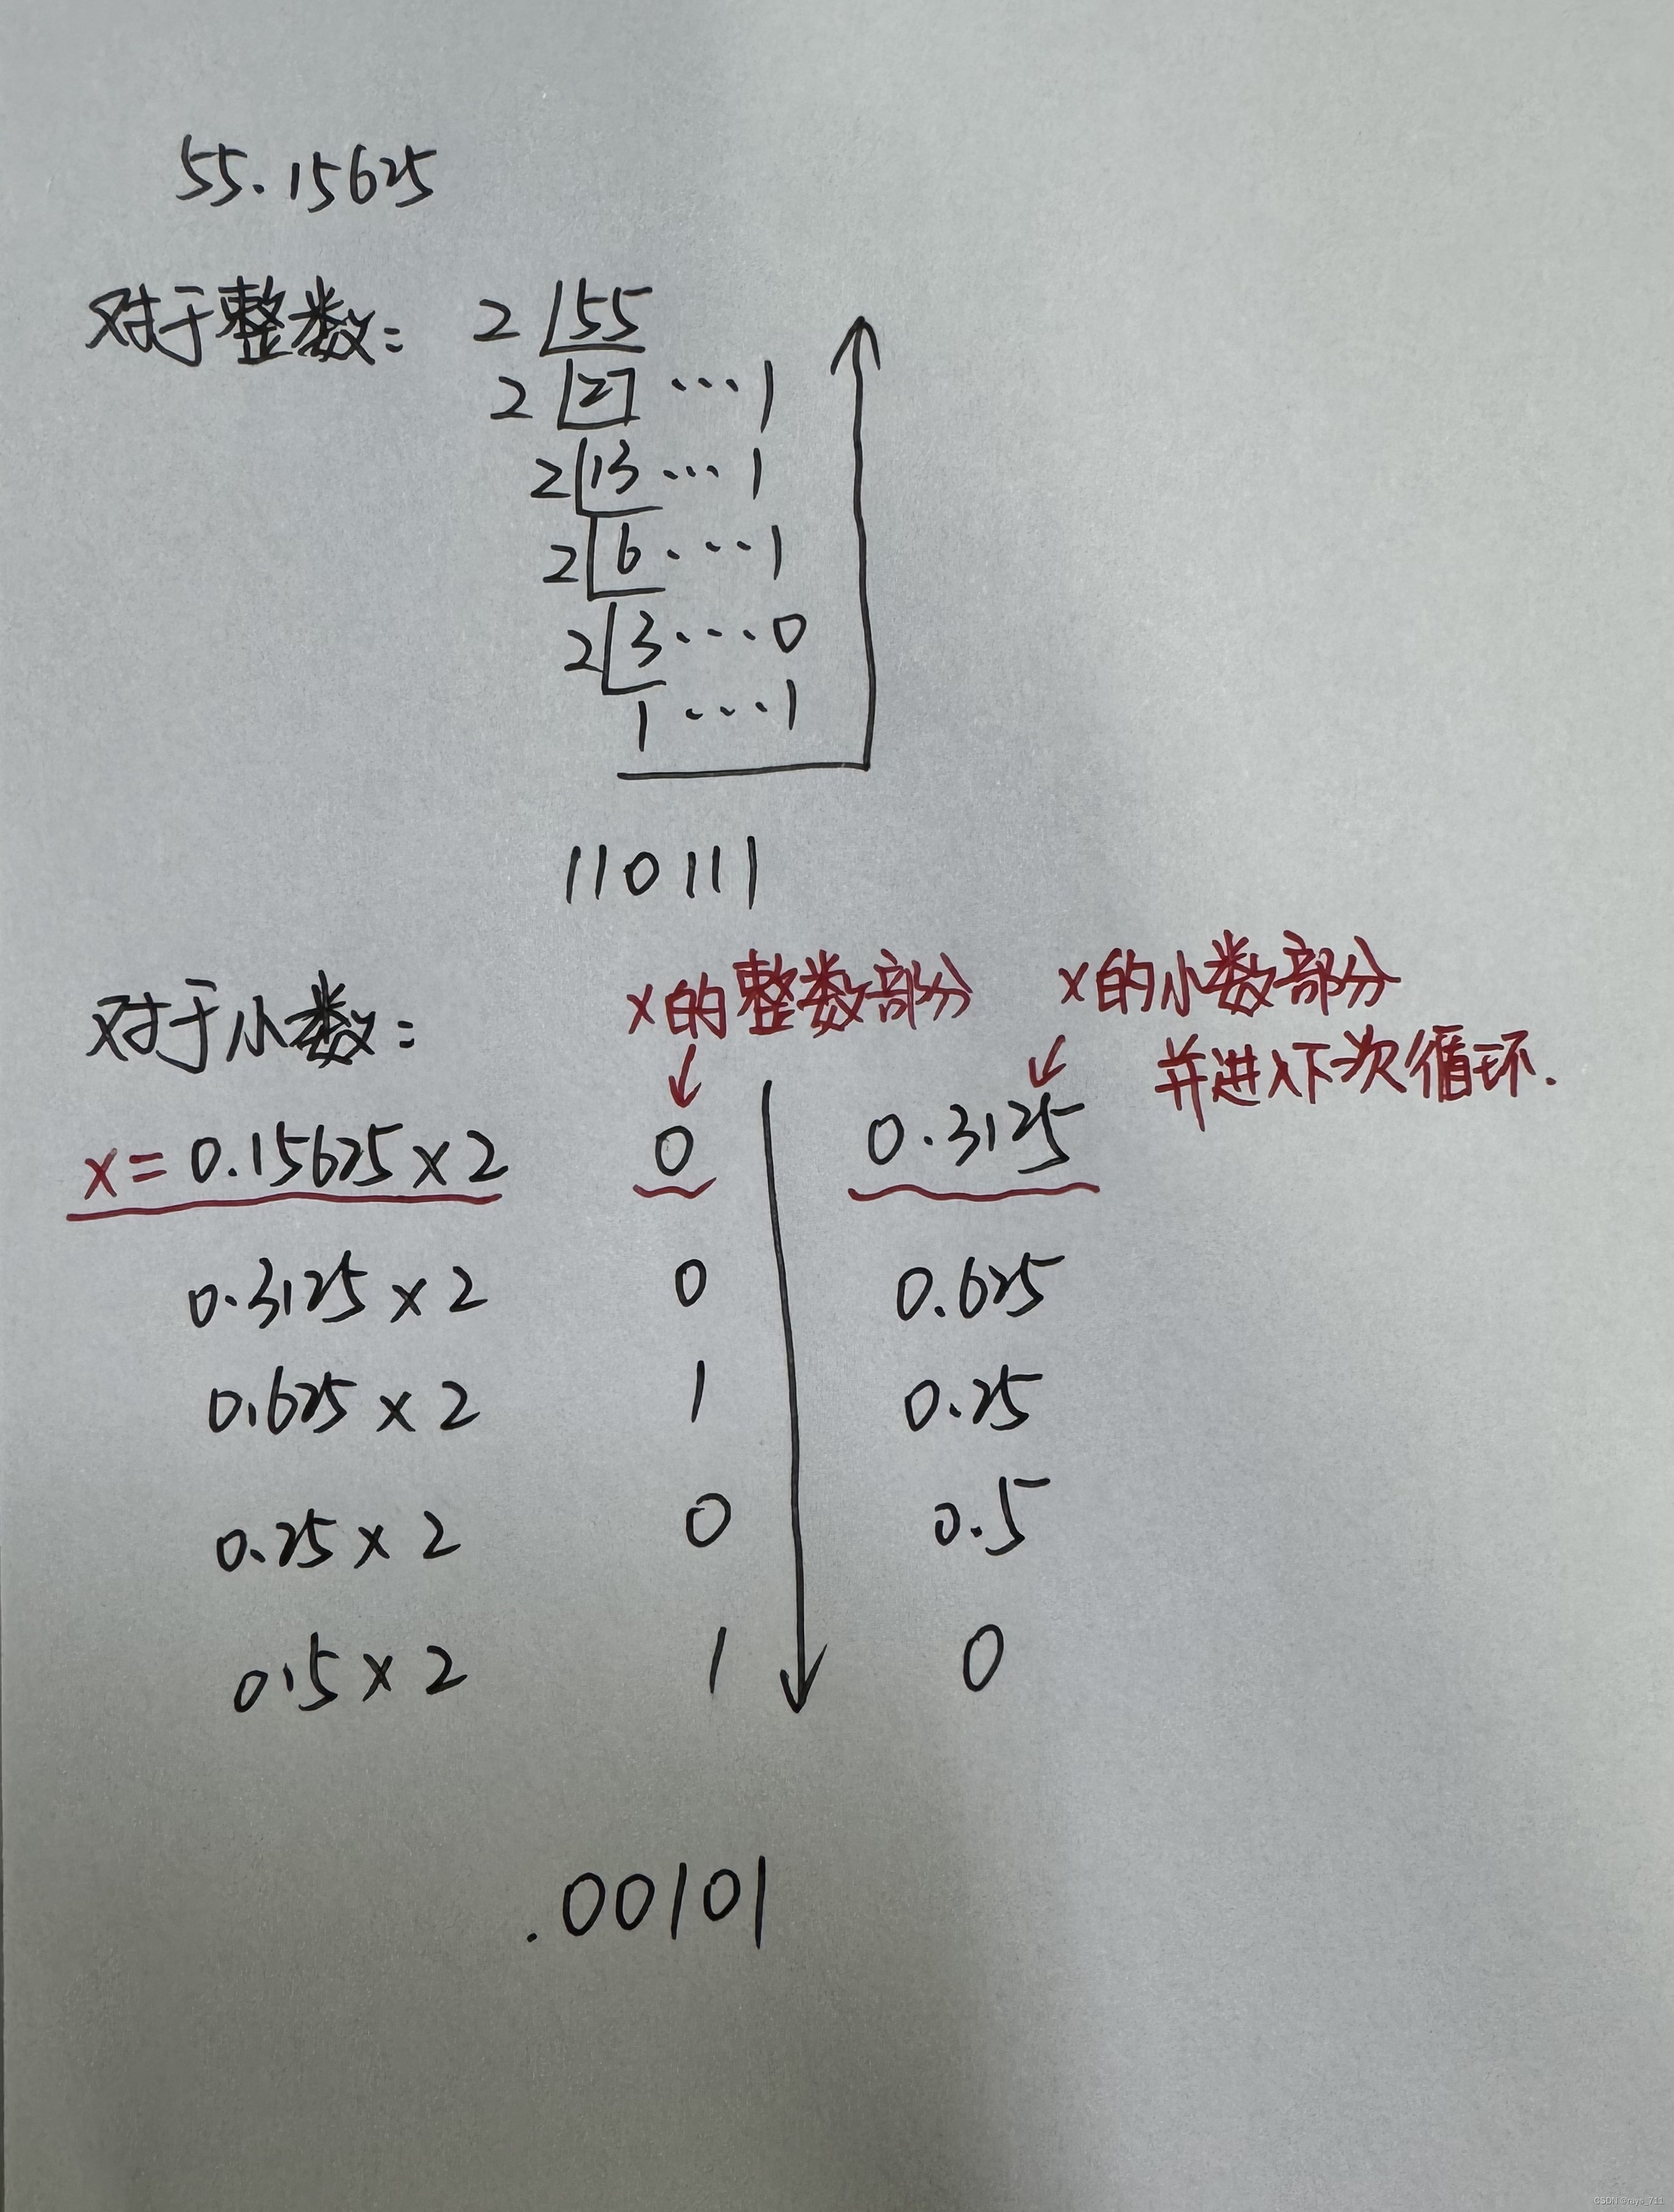 55.15625
对于整数: 2 55
2 27 ···1
2 13 ··· 1
2 6 ····1
2 3 ····0
1 ····1
110111
对于小数: x的整数部分 x的小数部分
并进入下次循环.
x=0.15625×2 0 0.3125
0.3125×2 0 0.625
0.625×2 1 0.25
0.25×2 0 0.5
0.5×2 1 0
.00101